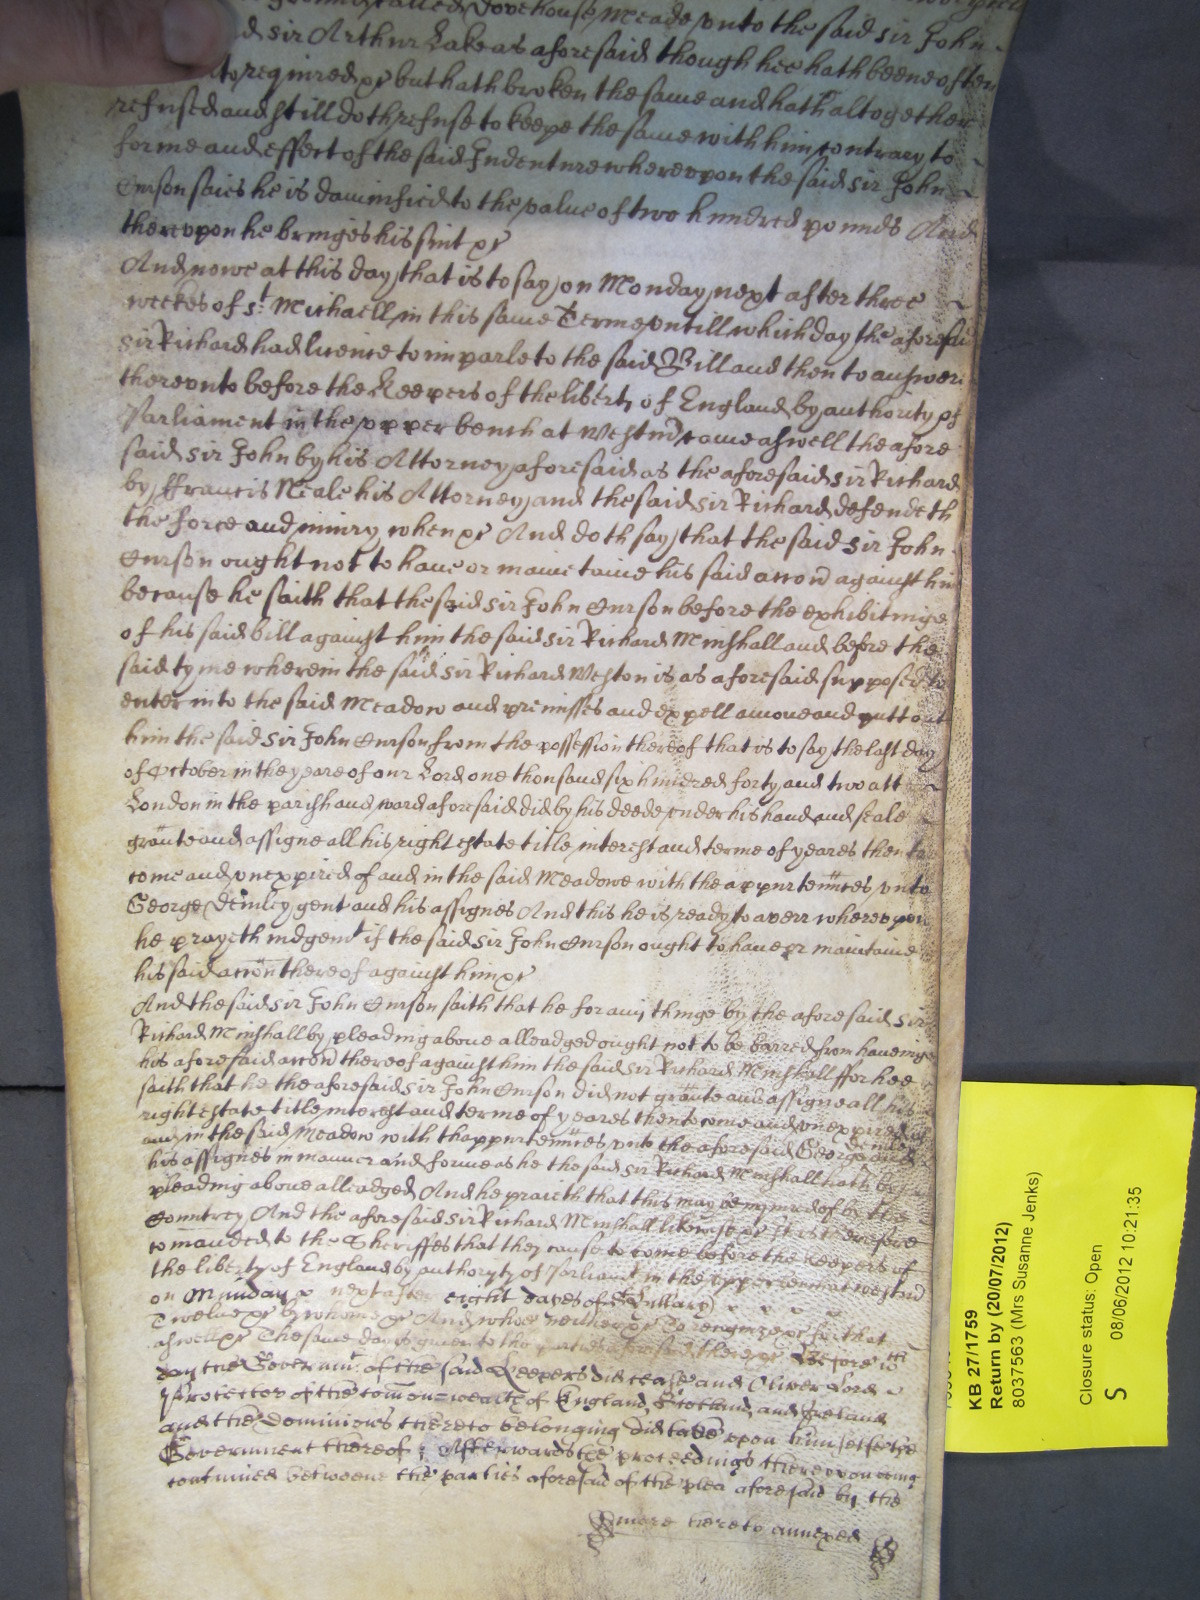 called Dovehouse Meade unto the said Sir John
Sir Arthur Lake as aforesaid though hee hath beene often
required &c but hath broken the same and hath altogether
refused and still doth refuse to keepe the same with him contrary to
forme and effect of the said Indenture whereupon the said Sir John
Curson saies he is damnified to the value of two hundred pounds And
thereupon he bringes his suit &c
And nowe at this day that is to say on Monday next after three
weekes of St Michaell in this same Terme untill which day the aforesaid
Sir Richard had licence to imparle to the said Bill and then to answere
thereunto before the Keepers of the liberty of England by authority of
Parliament in the upper bench at Westmr came aswell the afore
said Sir John by his Attorney aforesaid as the aforesaid Sir Richard
by ffrancis Neale his Attorney and the said Sir Richard defendeth
the force and iniury when &c And doth say that the said Sir John
Curson ought not to have or maintaine his said accon against him
because he saith that the said Sir John Curson before the exhibitinge
of his said bill against him the said Sir Richard Minshall and before the
said tyme wherein the said Sir Richard Weston is as aforesaid supposed to
enter into the said Meadow and premisses and expell amove and putt out
him the said Sir John Curson from the possession thereof that is to say the last day
of October in the yeare of our Lord one thousand six hundred forty and two att
London in the parish and ward aforesaid did by his deede under his hand and seale
graunte and assigne all his right estate title interest and terme of yeares then to
come and unexpired of and in the said Meadowe with the appurtennces unto
George gent and his assignes And this he is ready to averr whereupon
he prayeth iudgemt if the said Sir John Curson ought to have or maintaine
his said accon thereof against him &c
And the said Sir John Curson saith that he for any thinge by the aforesaid Sir
Richard Minshall by pleading above alleadged ought not to be barred from haveinge
his aforesaid accon thereof against him the said Sir Richard Minshall ffor hee
saith that he the aforesaid Sir John Curson did not graunte and assigne all his
right estate title interest and terme of yeares then to come and unexpired of
and in the said Meadow with thappurtennces unto the aforesaid George and
his assignes in manner and forme as he the said Sir Richard Minshall hath by
pleading above alleadged And he praieth that this may be inquired of by the
Countrey And the aforesaid Sir Richard Minshall likewise &c It is therefore
comanded to the Sheriffes that they cause to come before the Keepers of
the liberty of England by authoryty of Parliamt in the upper bench at Westmr
on Munday next after eight dayes of St Hillary
Twelve &c by whome &c And who neither &c To recognize &c for that
aswell &c The same day is given to the parties aforesaid there &c Before wch
day the Governmt of the said Keepers did cease and Oliver Lord
Protector of the Comon-wealth of England Scotland and Ireland
and the Dominions thereto belonging did take upon him selfe the
Government thereof; Afterwards the proceedings thereupon being
continued betweene the parties aforesaid of the plea aforesaid by the
more hereto annexed
KB 27/1759
Return by (20/07/2012)
8037563 (Mrs Susanne Jenks)
Closure status: Open
S 08/06/2012 10:21:35